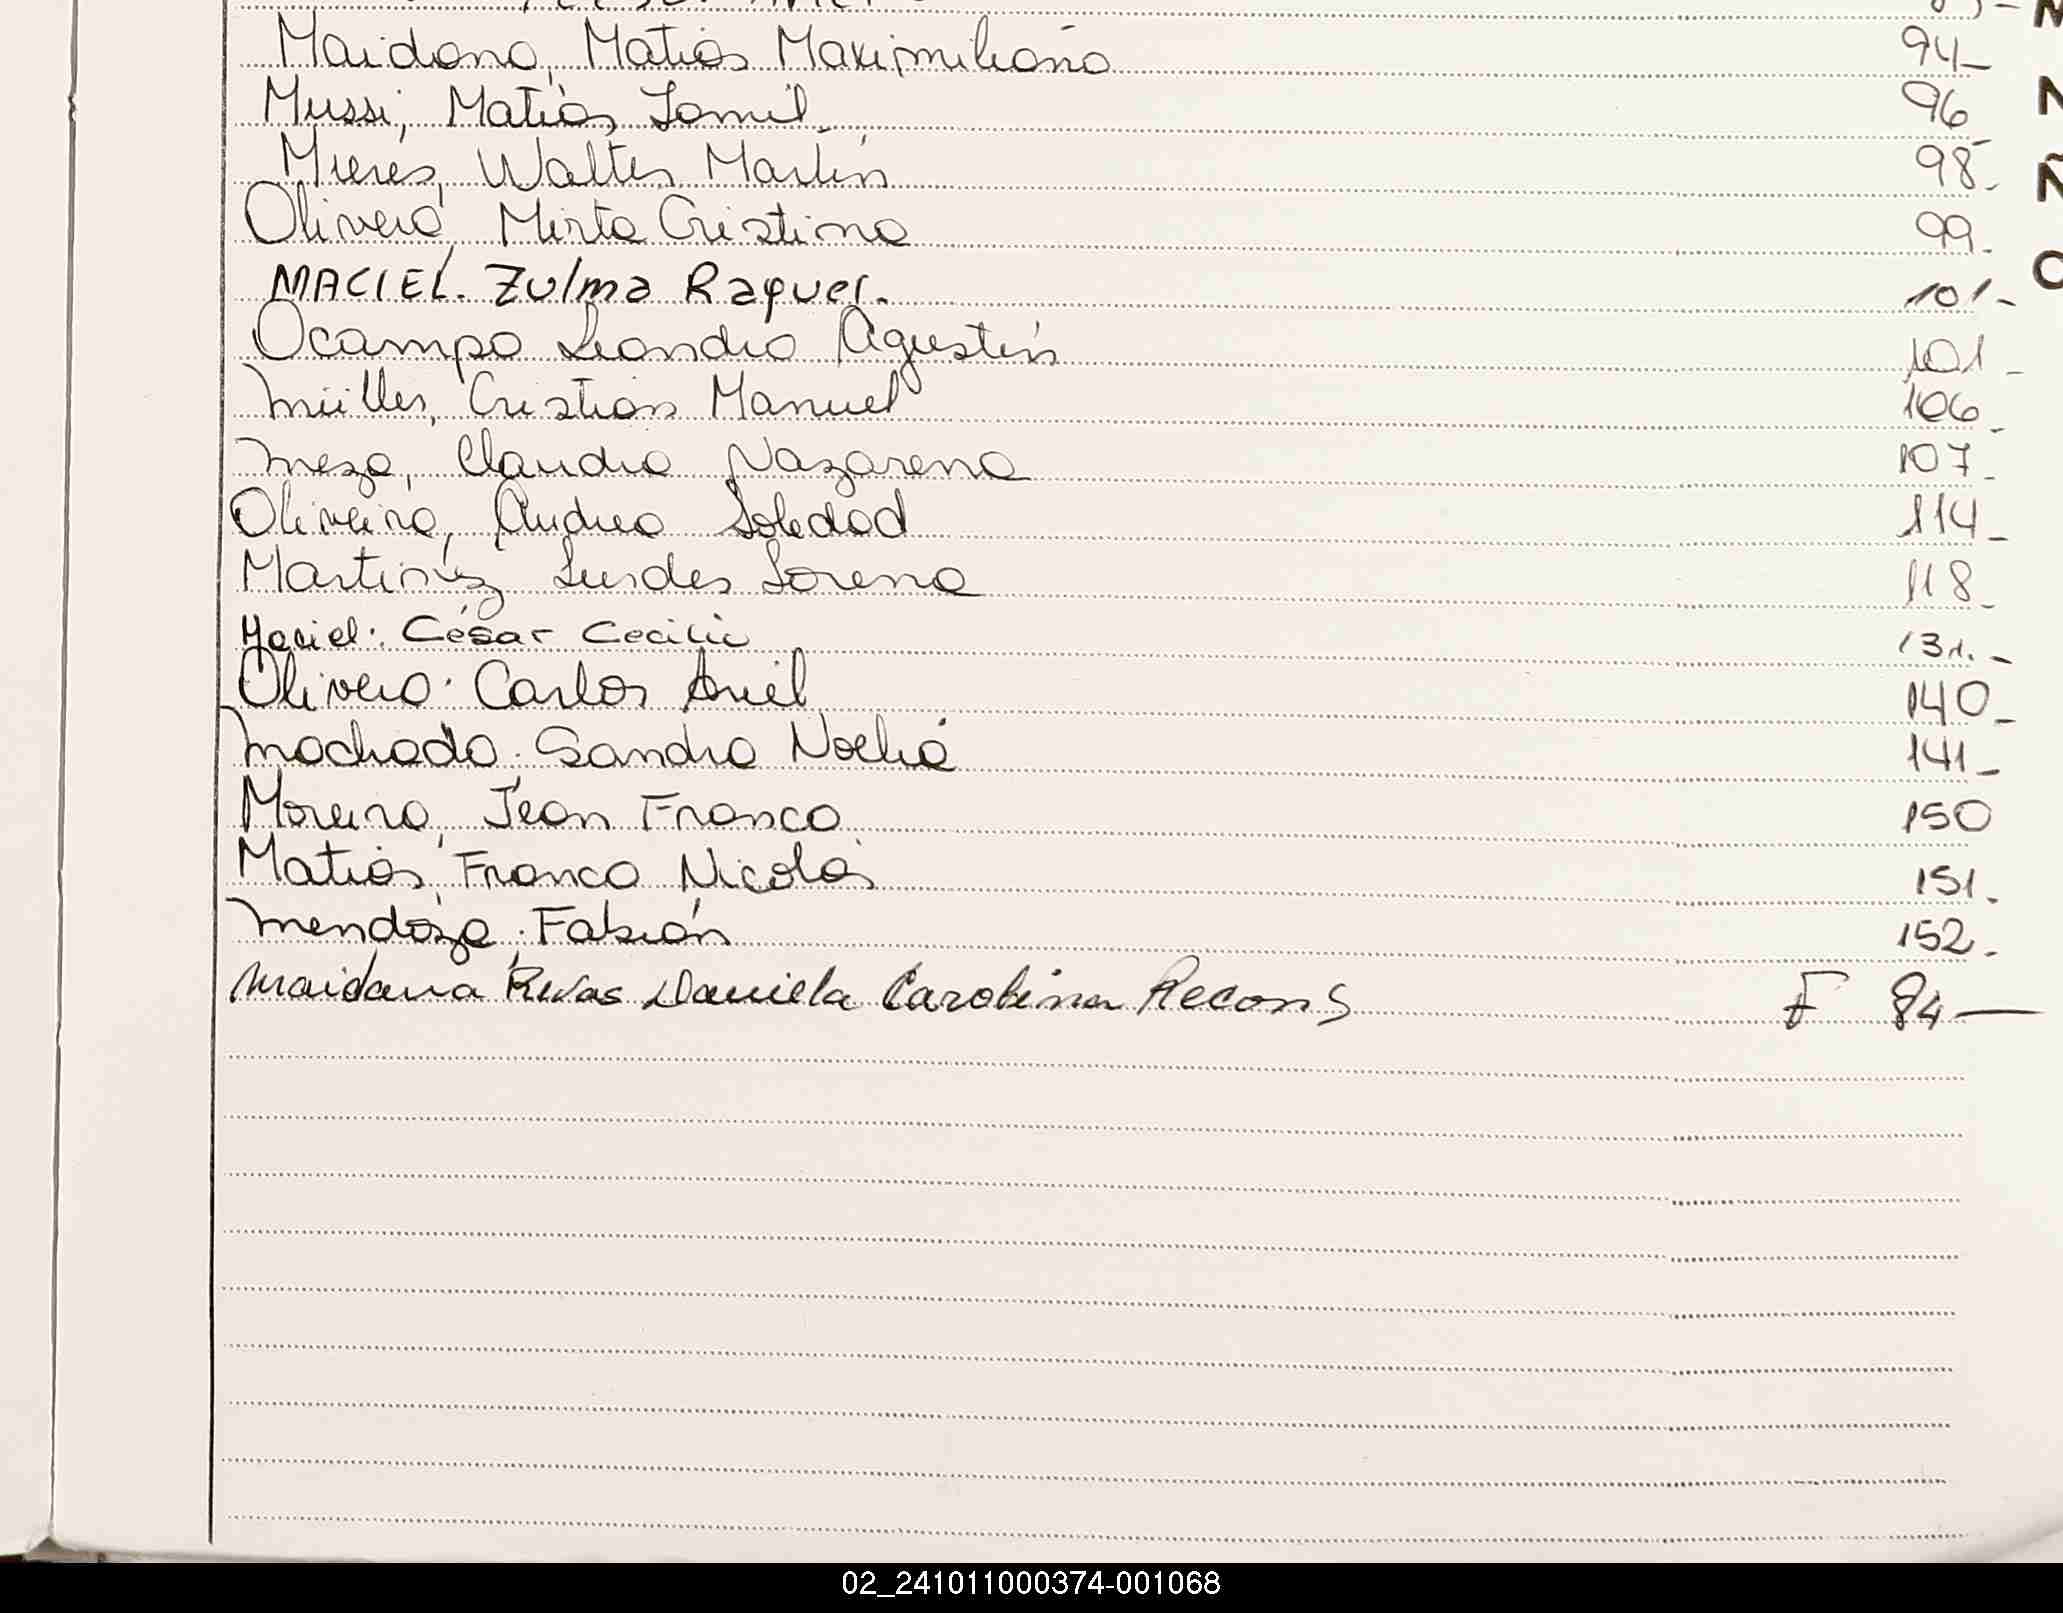 Maidana, Matias Maximiliano 94-
Mussi, Matias Jamil. 96-
Mieres, Walter Martín 98-
Olivera, Mirta Cristina 99-
MACIEL. Zulma Raquel. 101-
Ocampo Leandro Agustín 101-
Müller, Cristian Manuel 106-
Meza, Claudia Nazarena 107-
Oliveira, Andrea Soledad 114-
Martinez Lurdes Lorena 118-
Maciel. César Cecilio 131.-
Olivera. Carlos Ariel 140-
Machado. Sandra Noelia 141-
Moreira, Jean Franco 150
Matias, Franco Nicolás 151.
Mendoza, Fabián 152-
Maidana Rivas Daniela Carolina Recons F 84-
M
N
Ñ
O
02_241011000374-001068